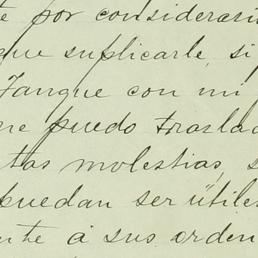 te por considerarl
que suplicarle, si
Tanque con mi
me puedo traslad
tas molestias, s
puedan ser útiles
nte á sus orden